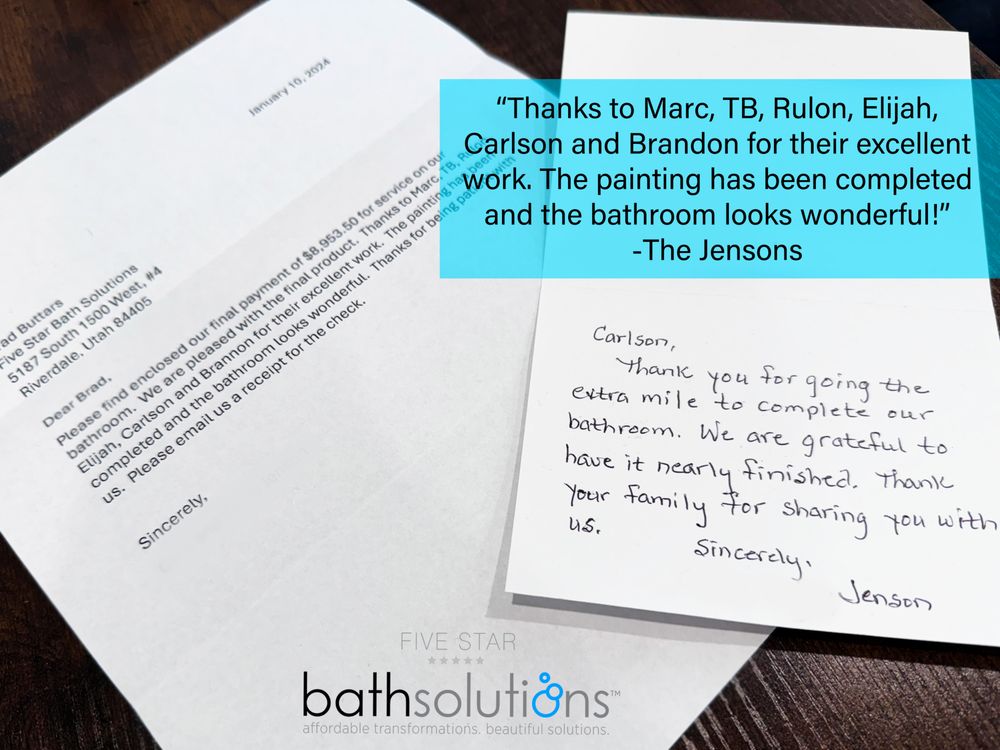 January 10, 2024
Buttars
Five Star Bath Solutions
5187 South 1500 West, #4
Riverdale, Utah 84405
Dear Brad,
Please find enclosed our final payment of $8,953.50 for service on our
bathroom. We are pleased with the final product. Thanks to Marc, TB,
Elijah, Carlson and Brannon for their excellent work. The painting has been
completed and the bathroom looks wonderful. Thanks for being patient with
us. Please email us a receipt for the check.
Sincerely,
“Thanks to Marc, TB, Rulon, Elijah,
Carlson and Brandon for their excellent
work. The painting has been completed
and the bathroom looks wonderful!”
-The Jensons
Carlson,
Thank you for going the
extra mile to complete our
bathroom. We are grateful to
have it nearly finished. Thank
your family for sharing you with
us.
Sincerely,
Jenson
FIVE STAR
bathsolutions™
affordable transformations. beautiful solutions.